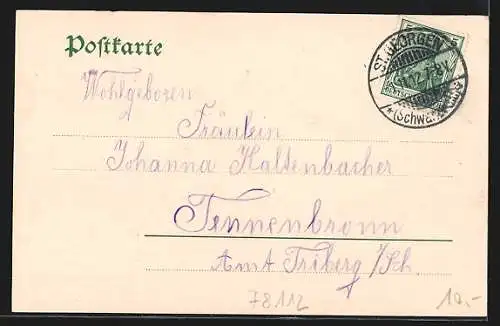 Postkarte
ST. GEORGEN
(Schwa
5
Wohlgeboren
Fräulein
Johanna Haltenbacher
Tennenbronn
Amt Triberg /Sch
78112
10,-